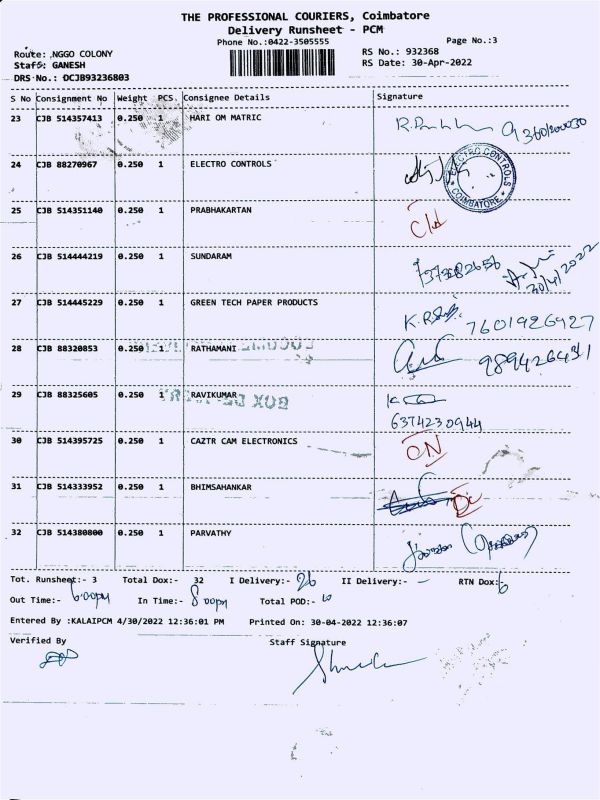 THE PROFESSIONAL COURIERS, Coimbatore
Delivery Runsheet - PCM
Phone No.:0422-3505555
Page No.:3
Route: NGGO COLONY
RS No.: 932368
Staff: GANESH
RS Date: 30-Apr-2022
DRS No.: DCJB93236803
S No Consignment No Weight PCS. Consignee Details Signature
23 CJB 514357413 0.250 1 HARI OM MATRIC
24 CJB 88270967 0.250 1 ELECTRO CONTROLS
ELECTRO CONTROLS
COIMBATORE
25 CJB 514351140 0.250 1 PRABHAKARTAN
26 CJB 514444219 0.250 1 SUNDARAM
30/4/2022
27 CJB 514445229 0.250 1 GREEN TECH PAPER PRODUCTS
7601926927
28 CJB 88320853 0.250 1 RATHAMANI
29 CJB 88325605 0.250 1 RAVIKUMAR
6374230944
30 CJB 514395725 0.250 1 CAZTR CAM ELECTRONICS ON
31 CJB 514333952 0.250 1 BHIMSAHANKAR
32 CJB 514380800 0.250 1 PARVATHY
Tot. Runsheet:- 3 Total Dox:- 32 I Delivery:- 26 II Delivery:- - RTN Dox:- 6
Out Time:- 6:00pm In Time:- 8:00pm Total POD:-
Entered By :KALAIPCM 4/30/2022 12:36:01 PM Printed On: 30-04-2022 12:36:07
Verified By Staff Signature